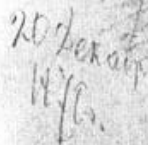 20 Декабр
1976г.